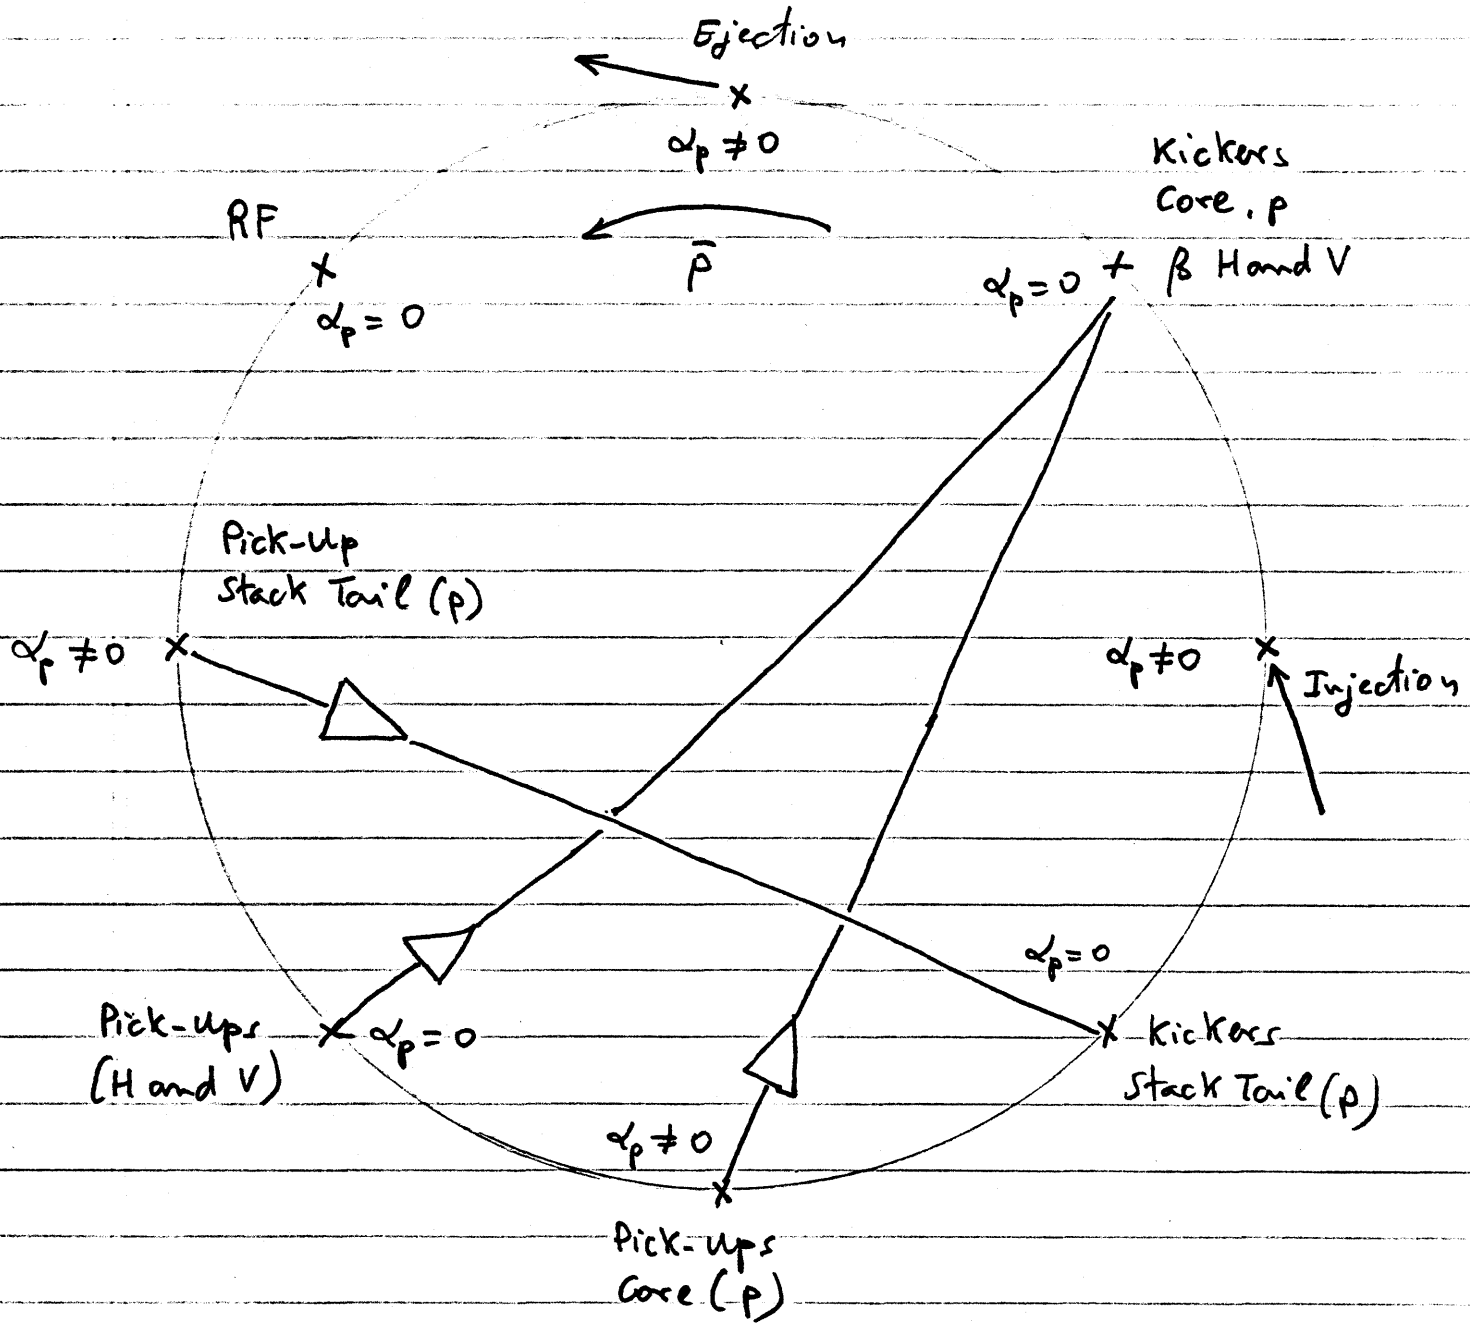 Ejection
αp ≠ 0
Kickers
Core, p
β H and V
αp = 0
RF
αp = 0
p̄
Pick-Up
Stack Tail (p)
αp ≠ 0
αp ≠ 0
Injection
αp = 0
Pick-Ups
(H and V)
αp = 0
Kickers
Stack Tail (p)
αp ≠ 0
Pick-Ups
Core (p)